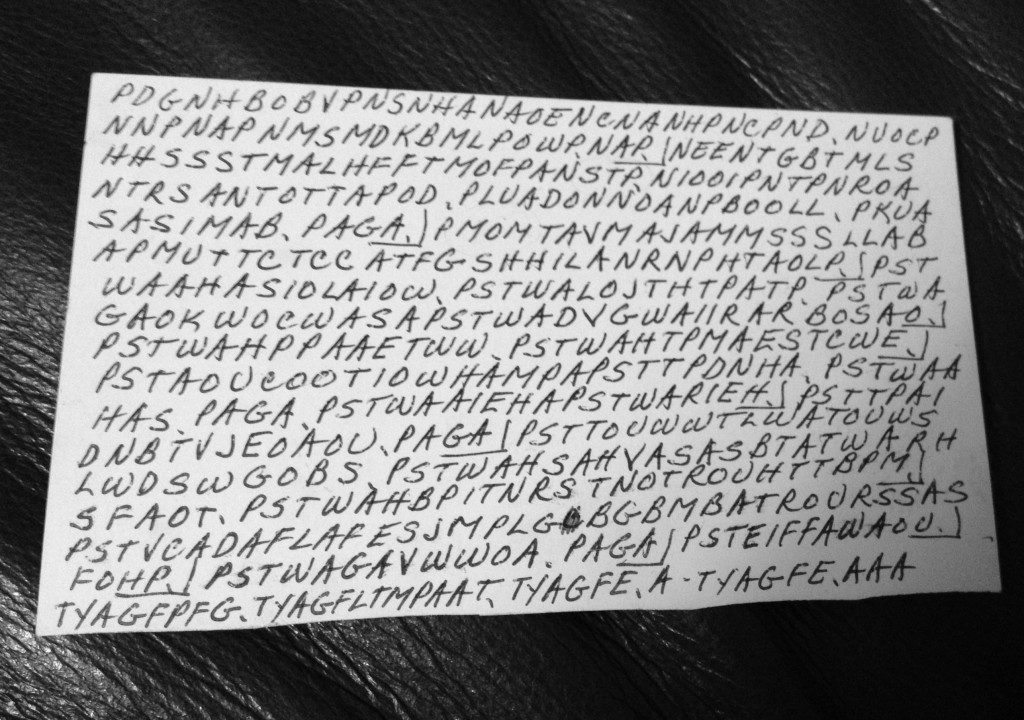 PDGNHBOBVPNSNHANAOENCNANHPNCPND, NUOCP
NNPNAPNMSMDKBMLPOWP,NAP, NEENTGBTMLS
HHSSSTMALHFFTMOFPANSTP, NIOOIPNTPNROA
NTRSANTOTTAPOD, PLUADONNOANPBOOLL, PKUA
SASIMAB, PAGA, PMOMTAVMAJAMMSSSLLAB
APMUTTCTCCATFGSHHILANRNPHTAOLP, PST
WAAHASIOLAIOW, PSTWALOJTHTPATP, PSTWA
GAOKWOCWASAPSTWADVGWAIIRARBOSAO,
PSTWAHPPAAETWW, PSTWAHTPMAESTCWE,
PSTAOUCOOTIOWHAMPAPSTTPDNHA, PSTWAA
HAS, PAGA, PSTWAAIEHAPSTWARIEH, PSTTPAI
DNBTVJEOAOU, PAGA PSTTOUWWTLWATOUWS
LWDSWGOBS, PSTWAHSAHVASASBTATWARH
SFAOT, PSTWAHBPITNRSTNOTROUHTTBPM,
PSTVCADAFLAFESJMPLG BGBMBATROURSSAS
FOHP, PSTWAGAVWWOA, PAGA PSTEIFFAWAOU,
TYAGFPFG, TYAGFLTMPAAT, TYAGFE, A-TYAGFE, AAA